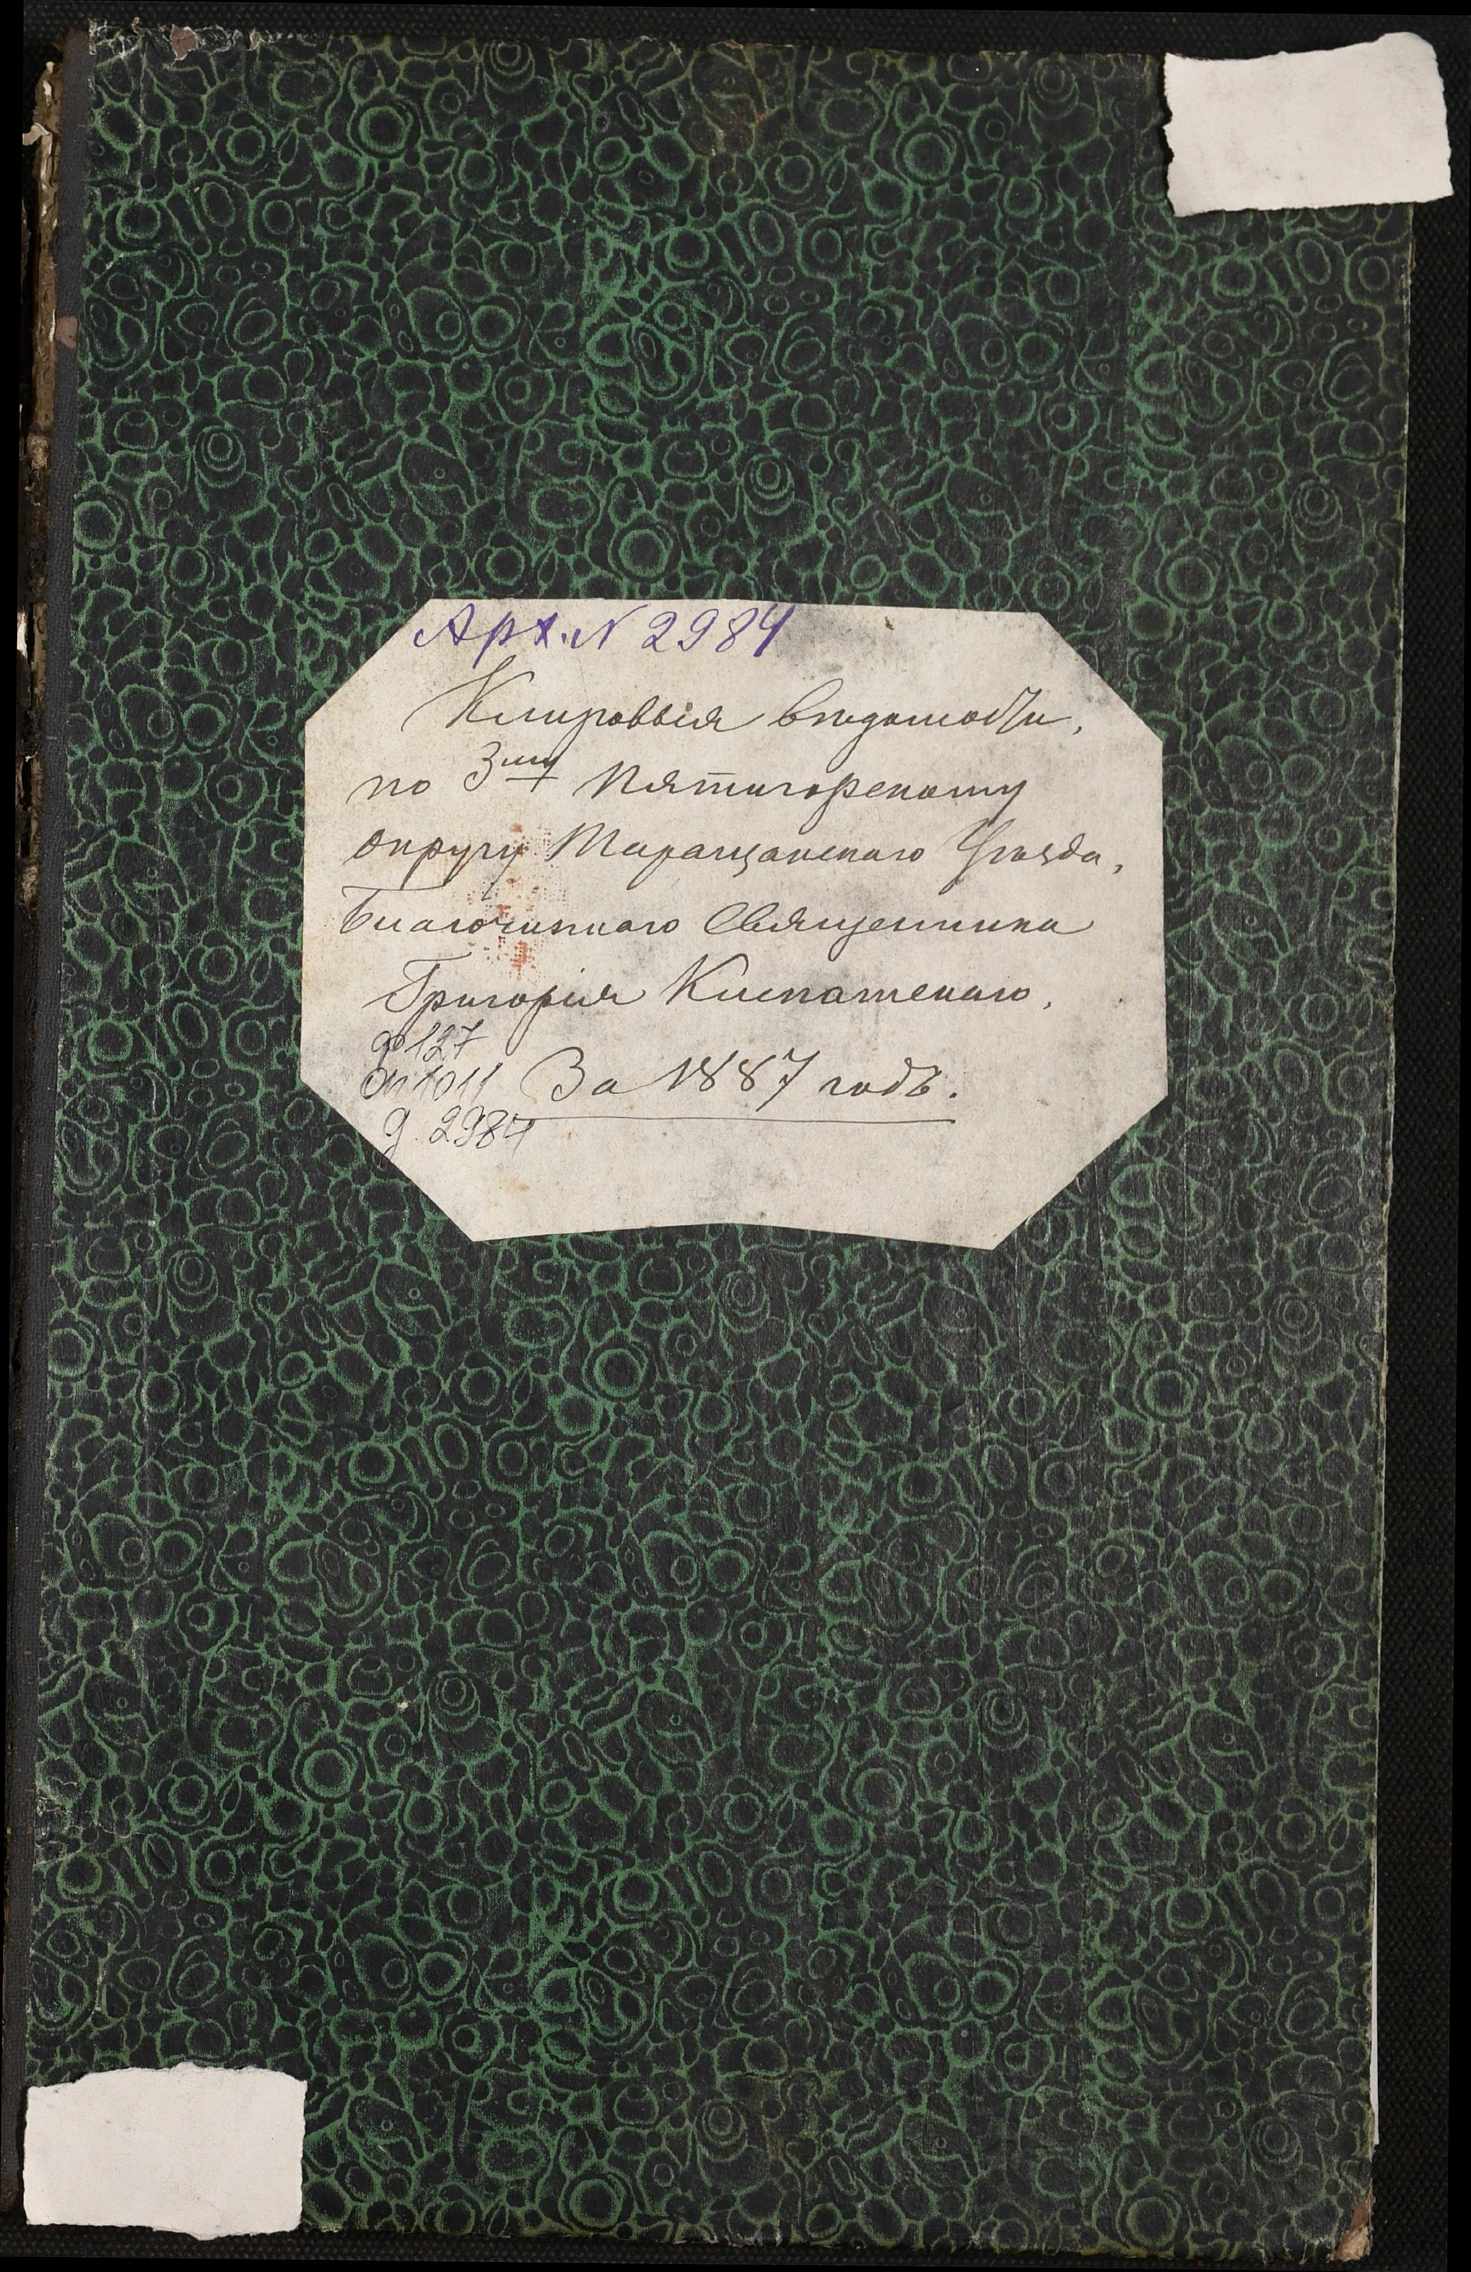 Арх. N 2984
Клировыя вѣдомости,
по 3му Пятигорскому
округу Таращанскаго Уѣзда,
Благочиннаго Священника
Григорія
ф 127
оп 1011 За 1887 годъ.
д. 2984